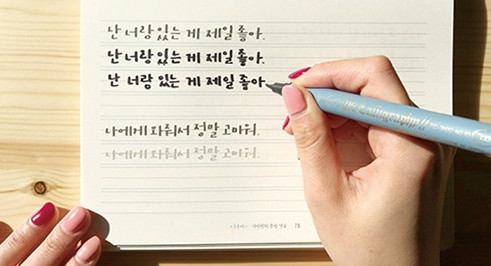 난 너랑 있는 게 제일 좋아.
난 너랑 있는 게 제일 좋아.
난 너랑 있는 게 제일 좋아
나에게 와줘서 정말 고마워.
나에게 와줘서 정말 고마워.
Calligraphy
73